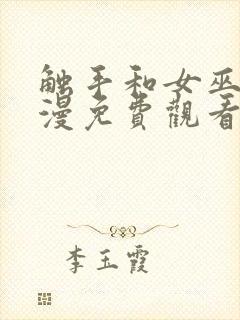 触手和女巫
漫免費觀看
李玉霞